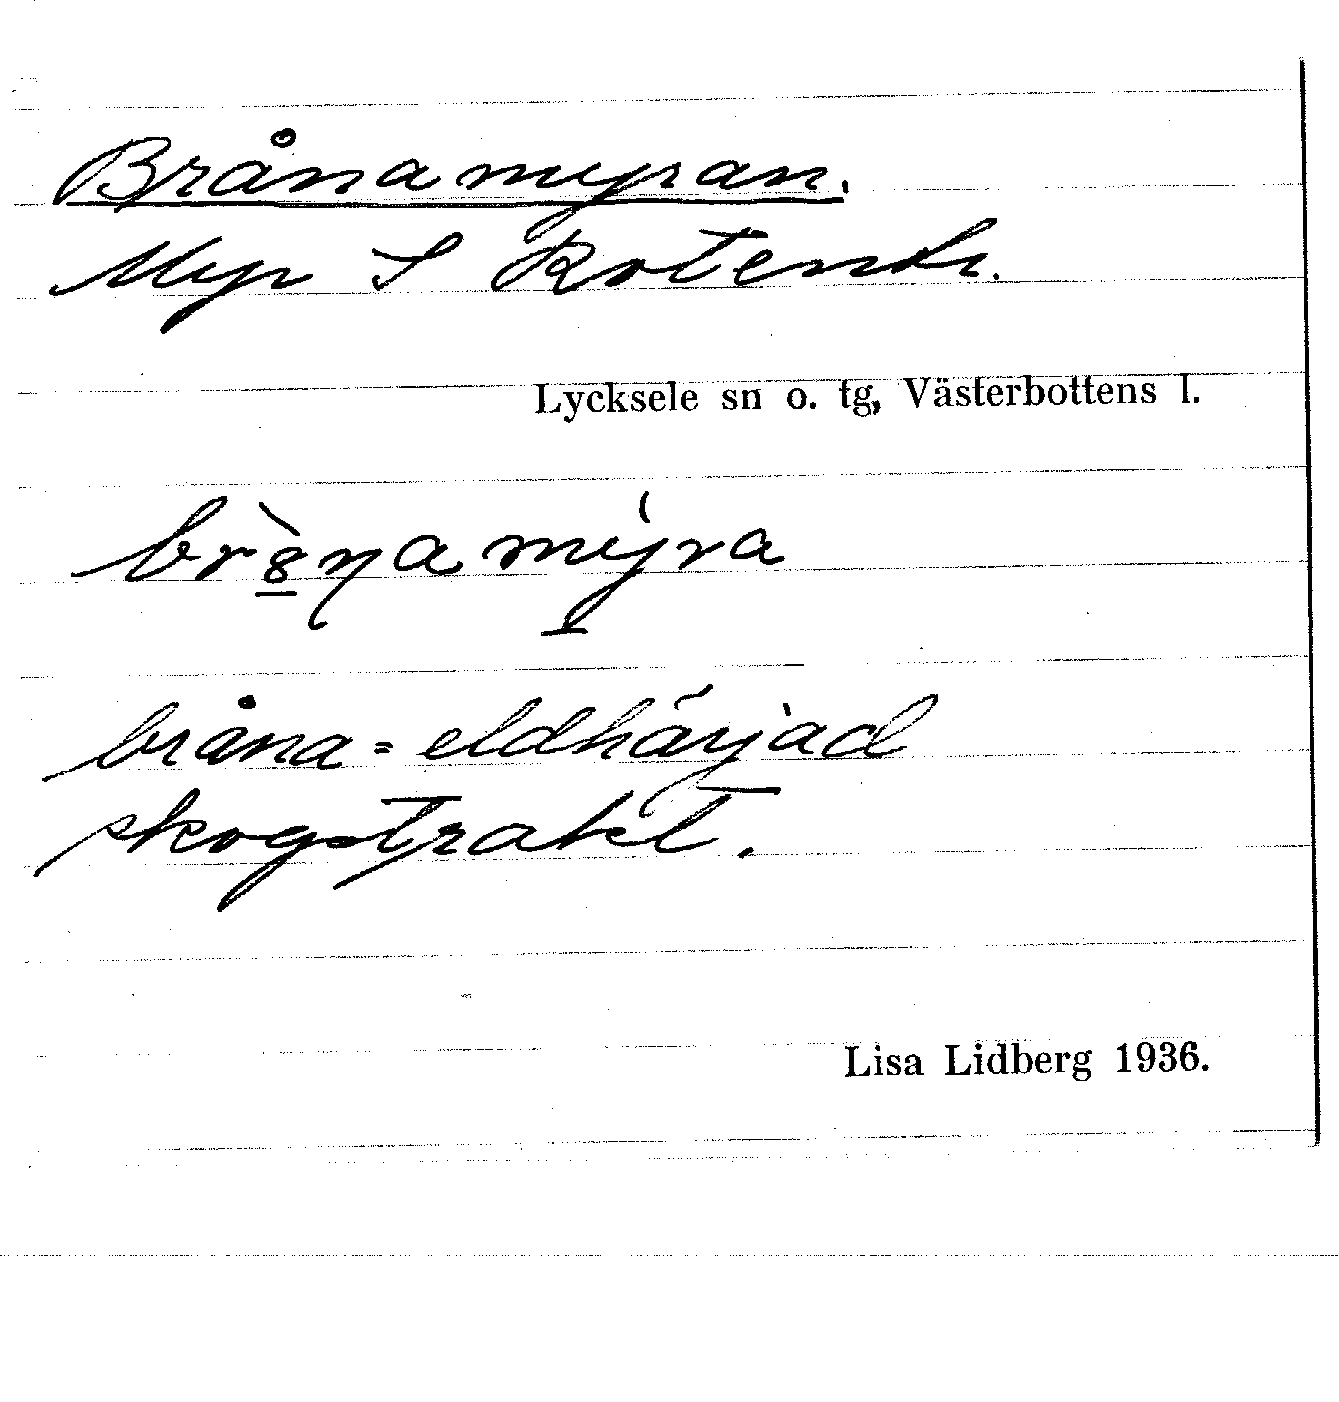 Brånamyran.
Myr S Rotentr.
Lycksele sn o. tg, Västerbottens l.
br8̲̀ŋamýra
bråna = eldhärjad
skogstrakt.
Lisa Lidberg 1936.